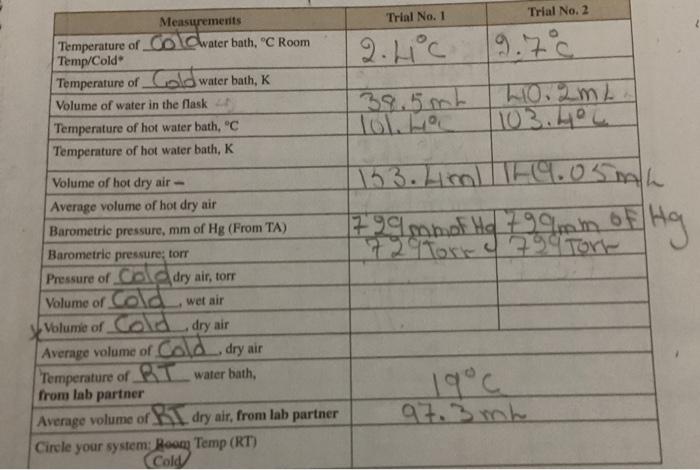 Measurements Trial No. 1 Trial No. 2
Temperature of Cold water bath, °C Room Temp/Cold* 2.4°C 9.7°C
Temperature of Cold water bath, K
Volume of water in the flask 38.5mL 40.2mL
Temperature of hot water bath, °C 101.4°C 103.4°C
Temperature of hot water bath, K
Volume of hot dry air – 153.4ml 149.05mL
Average volume of hot dry air
Barometric pressure, mm of Hg (From TA) 799mm of Hg 799mm of Hg
Barometric pressure; torr 729 Torr 799 Torr
Pressure of Cold dry air, torr
Volume of Cold, wet air
x Volume of Cold, dry air
Average volume of Cold, dry air
Temperature of RT water bath,
from lab partner 19°C
Average volume of RT dry air, from lab partner 97.3mL
Circle your system: Room Temp (RT)
Cold